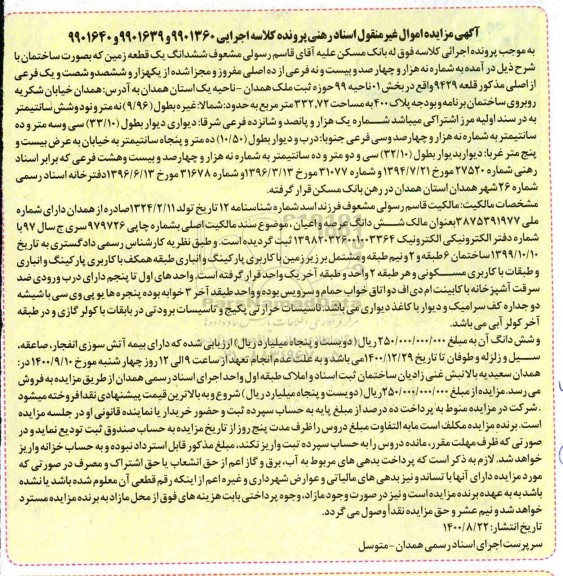 آگهی مزایده اموال غیرمنقول اسناد رهنی پرونده کلاسه اجرایی ۹۹۰۱۳۶۰ و ۹۹۰۱۶۳۹ و ۹۹۰۱۶۴۰
به موجب پرونده اجرائی کلاسه فوق له بانک مسکن علیه آقای قاسم رسولی مشعوف ششدانگ یک قطعه زمین که بصورت ساختمان با
شرح ذیل در آمده به شماره نه هزار و چهار صد و بیست و نه فرعی از ده اصلی مفروز و مجزا شده از یکهزار و ششصد و شصت و یک فرعی
از اصلی مذکور قلعه ۹۴۲۹ واقع در بخش ۰۱ ناحیه ۹۹ حوزه ثبت ملک همدان - ناحیه یک استان همدان به آدرس: همدان خیابان شکریه
روبروی ساختمان برنامه و بودجه پلاک ۴۰۰ به مساحت ۳۳۲,۷۲ متر مربع به حدود: شمالا: غیره بطول (۹/۹۶) نه متر و نود و شش سانتیمتر
به در سند اولیه مرز اشتراکی میباشد شماره یک هزار و پانصد و شانزده فرعی شرقا: دیواری دیوار بطول (۳۳/۱۰) سی وسه متر و ده
سانتیمتر به شماره نه هزار و چهارصد وسی فرعی جنوبا: درب و دیوار بطول (۱۰/۵۰) ده متر و پنجاه سانتیمتر به خیابان به عرض بیست و
پنج متر غربا: دیوار بدیوار بطول (۳۲/۱۰) سی و دو متر و ده سانتیمتر به شماره نه هزار و چهارصد و بیست وهشت فرعی که برابر اسناد
رهنی شماره ۲۷۵۲۰ مورخ ۱۳۹۴/۷/۲۱ و شماره ۳۱۰۷۷ مورخ ۱۳۹۶/۳/۱۳ و شماره ۳۱۶۷۸ مورخ ۱۳۹۶/۶/۱۳ دفترخانه اسناد رسمی
شماره ۲۶ شهر همدان استان همدان در رهن بانک مسکن قرار گرفته.
مشخصات مالکیت: مالکیت قاسم رسولی مشعوف فرزند اسد شماره شناسنامه ۱۲ تاریخ تولد ۱۳۲۴/۲/۱۱ صادره از همدان دارای شماره
ملی ۳۸۷۵۳۹۱۹۷۷ بعنوان مالک شش دانگ عرصه واعیان ، موضوع سند مالکیت اصلی بشماره چاپی ۹۷۹۷۲۶ سری ج سال ۹۷ با
شماره دفتر الکترونیکی الکترونیک ۱۳۹۸۲۰۳۲۶۰۰۱۰۰۳۳۶۴ ثبت گردیده است. و طبق نظر به کارشناس رسمی دادگستری به تاریخ
۱۳۹۹/۱۰/۱۰ ساختمان ۶ طبقه و ۲ ونیم طبقه ومشتمل بر زیر زمین با کاربری پارکینگ و انباری طبقه همکف با کاربری پارکینگ وانباری
و طبقات با کاربری مسکونی و هر طبقه ۲ واحد و طبقه آخر یک واحد قرار گرفته است. واحد های اول تا پنجم دارای درب ورودی ضد
سرقت آشپزخانه با کابینت ام دی اف دو اتاق خواب حمام و سرویس بوده و واحد طبقه آخر ۳ خوابه بوده پنجره ها یو پی وی سی با شیشه
دو جداره کف سرامیک و دیوار با کاغذ دیواری می باشد. تأسیسات حرارتی پکیج و تأسیسات برودتی در بابقات با کولر گازی و در طبقه
آخر کولر آبی می باشد.
و شش دانگ آن به مبلغ ۲۵۰/۰۰۰/۰۰۰/۰۰۰ ریال (دویست و پنجاه میلیارد ریال) ارزیابی شده که دارای بیمه آتش سوزی انفجار، صاعقه،
سیل و زلزله و طوفان تا تاریخ ۱۴۰۰/۱۲/۲۹ می باشد و به علت عدم انجام تعهد از ساعت ۹ الی ۱۲ روز چهار شنبه مورخ ۱۴۰۰/۹/۱۰ در:
همدان سعیدیه بالا نبش غنی زادیان ساختمان ثبت اسناد و املاک طبقه اول واحد اجرای اسناد رسمی همدان از طریق مزایده به فروش
می رسد. مزایده از مبلغ ۲۵۰/۰۰۰/۰۰۰/۰۰۰ ریال (دویست و پنجاه میلیارد ریال) شروع و به بالاترین قیمت پیشنهادی نقدا فروخته میشود
. شرکت در مزایده منوط به پرداخت ده درصد از مبلغ پایه به حساب سپرده ثبت و حضور خریدار یا نماینده قانونی او در جلسه مزایده
است. برنده مزایده مکلف است مابه التفاوت مبلغ دروس را ظرف مدت پنج روز از تاریخ مزایده به حساب صندوق ثبت تودیع نماید و در
صورتی که ظرف مهلت مقرر، مانده دروس را به حساب سپرده ثبت واریز نکند، مبلغ مذکور قابل استرداد نبوده و به حساب خزانه واریز
خواهد شد. لازم به ذکر است که پرداخت بدهی های مربوط به آب، برق و گاز اعم از حق انشعاب یا حق اشتراک و مصرف در صورتی که
مورد مزایده دارای آنها با تساند و نیز بدهی های مالیاتی و عوارض شهرداری و غیره اعم از اینکه رقم قطعی آن معلوم شده باشد یا نشده
باشد به به عهده برنده مزایده است و نیز در صورت وجود مازاد، وجوه پرداختی بابت هزینه های فوق از محل مازاد به برنده مزایده مسترد
خواهد شد و نیم عشر و حق مزایده نقداً وصول می گردد.
تاریخ انتشار: ۱۴۰۰/۸/۲۲
سرپرست اجرای اسناد رسمی همدان - متوسل